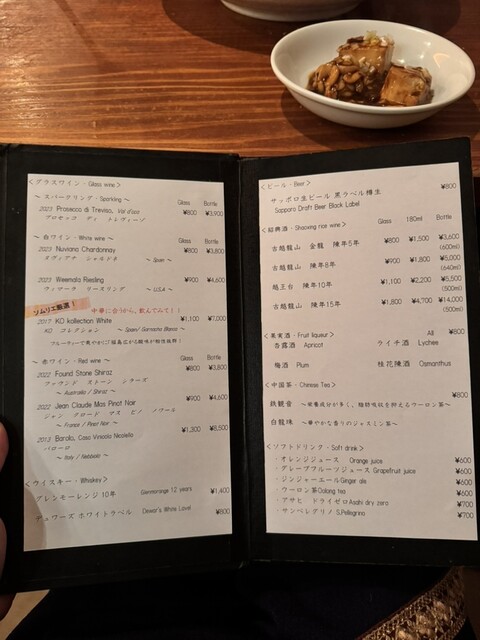 ＜グラスワイン・Glass wine＞
～ スパークリング・Sparkling ～ Glass Bottle
2023 Prosecco di Treviso, Val d'oca ¥800 ¥3,900
プロセッコ ディ トレヴィーゾ
～ 白ワイン・White wine ～ Glass Bottle
2023 Nuviana Chardonnay ¥800 ¥3,800
ヌヴィアナ シャルドネ ～ Spain ～
2023 Weemala Riesling ¥900 ¥4,600
ウィマーラ リースリング ～ U.S.A ～
ソムリエ厳選！ 中華に合うから、飲んでみて！！
2017 KO kollection White ¥1,100 ¥7,000
KO コレクション ～ Spain/ Garnacha Blanca ～
～ 赤ワイン・Red wine ～ Glass Bottle
2022 Found Stone Shiraz ¥800 ¥3,800
ファウンド ストーン シラーズ
～ Australia / Shiraz ～
2022 Jean Claude Mas Pinot Noir ¥900 ¥4,600
ジャン クロード マス ピノ ノワール
～ France / Pinot Noir ～
2013 Barolo, Casa Vinicola Nicolello ¥1,300 ¥8,500
バローロ
～ Italy / Nebbiolo ～
＜ウイスキー・Whiskey＞
グレンモーレンジ 10年 Glenmorangie 12 years ¥1,400
デュワーズ ホワイトラベル Dewar's White Level ¥800
＜ビール・Beer＞
サッポロ生ビール 黒ラベル樽生 ¥800
Sapporo Draft Beer Black Label
＜紹興酒・Shaoxing rice wine＞ Glass 180ml Bottle
古越龍山 金龍 陳年5年 ¥800 ¥1,500 ¥3,600
(600ml)
古越龍山 陳年8年 ¥900 ¥1,800 ¥5,000
(640ml)
越王台 陳年10年 ¥1,100 ¥2,200 ¥5,500
(500ml)
古越龍山 陳年15年 ¥1,800 ¥4,700 ¥14,000
(500ml)
＜果実酒・Fruit liqueur＞ All ¥800
杏露酒 Apricot ライチ酒 Lychee
梅酒 Plum 桂花陳酒 Osmanthus
＜中国茶・Chinese Tea＞ ¥800
鉄観音 ～栄養成分が多く、脂肪吸収を抑えるウーロン茶～
白龍珠 ～華やかな香りのジャスミン茶～
＜ソフトドリンク・Soft drink＞
・オレンジジュース Orange juice ¥600
・グレープフルーツジュース Grapefruit juice ¥600
・ジンジャーエール Ginger ale ¥600
・ウーロン茶 Oolong tea ¥600
・アサヒ ドライゼロ Asahi dry zero ¥700
・サンペレグリノ S.Pellegrino ¥700